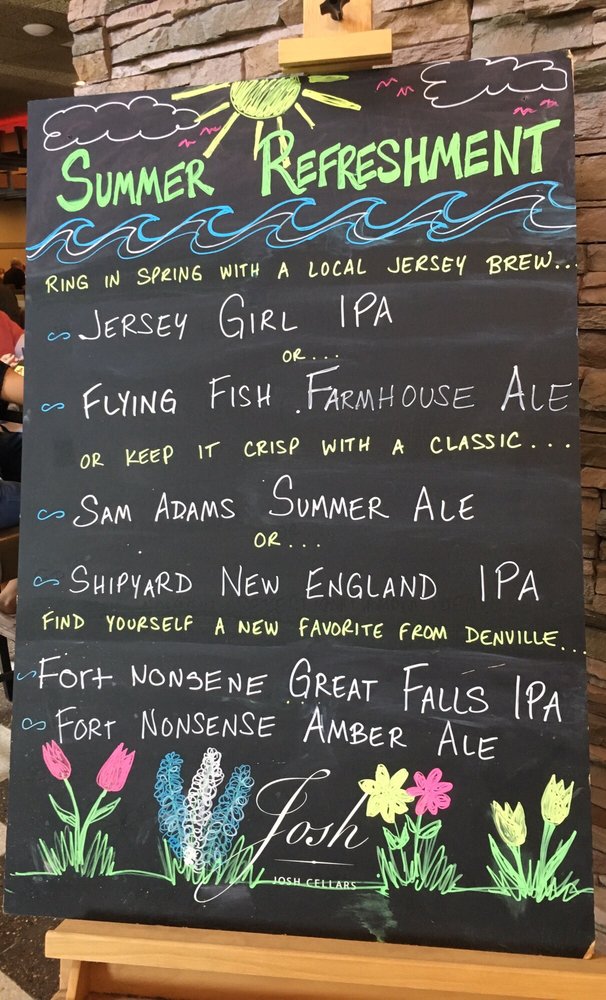 SUMMER REFRESHMENT
RING IN SPRING WITH A LOCAL JERSEY BREW...
~ JERSEY GIRL IPA
OR...
~ FLYING FISH FARMHOUSE ALE
OR KEEP IT CRISP WITH A CLASSIC...
~ SAM ADAMS SUMMER ALE
OR...
~ SHIPYARD NEW ENGLAND IPA
FIND YOURSELF A NEW FAVORITE FROM DENVILLE...
~ FORt NONSENE GREAT FALLS IPA
~ FORT NONSENSE AMBER ALE
Josh
JOSH CELLARS